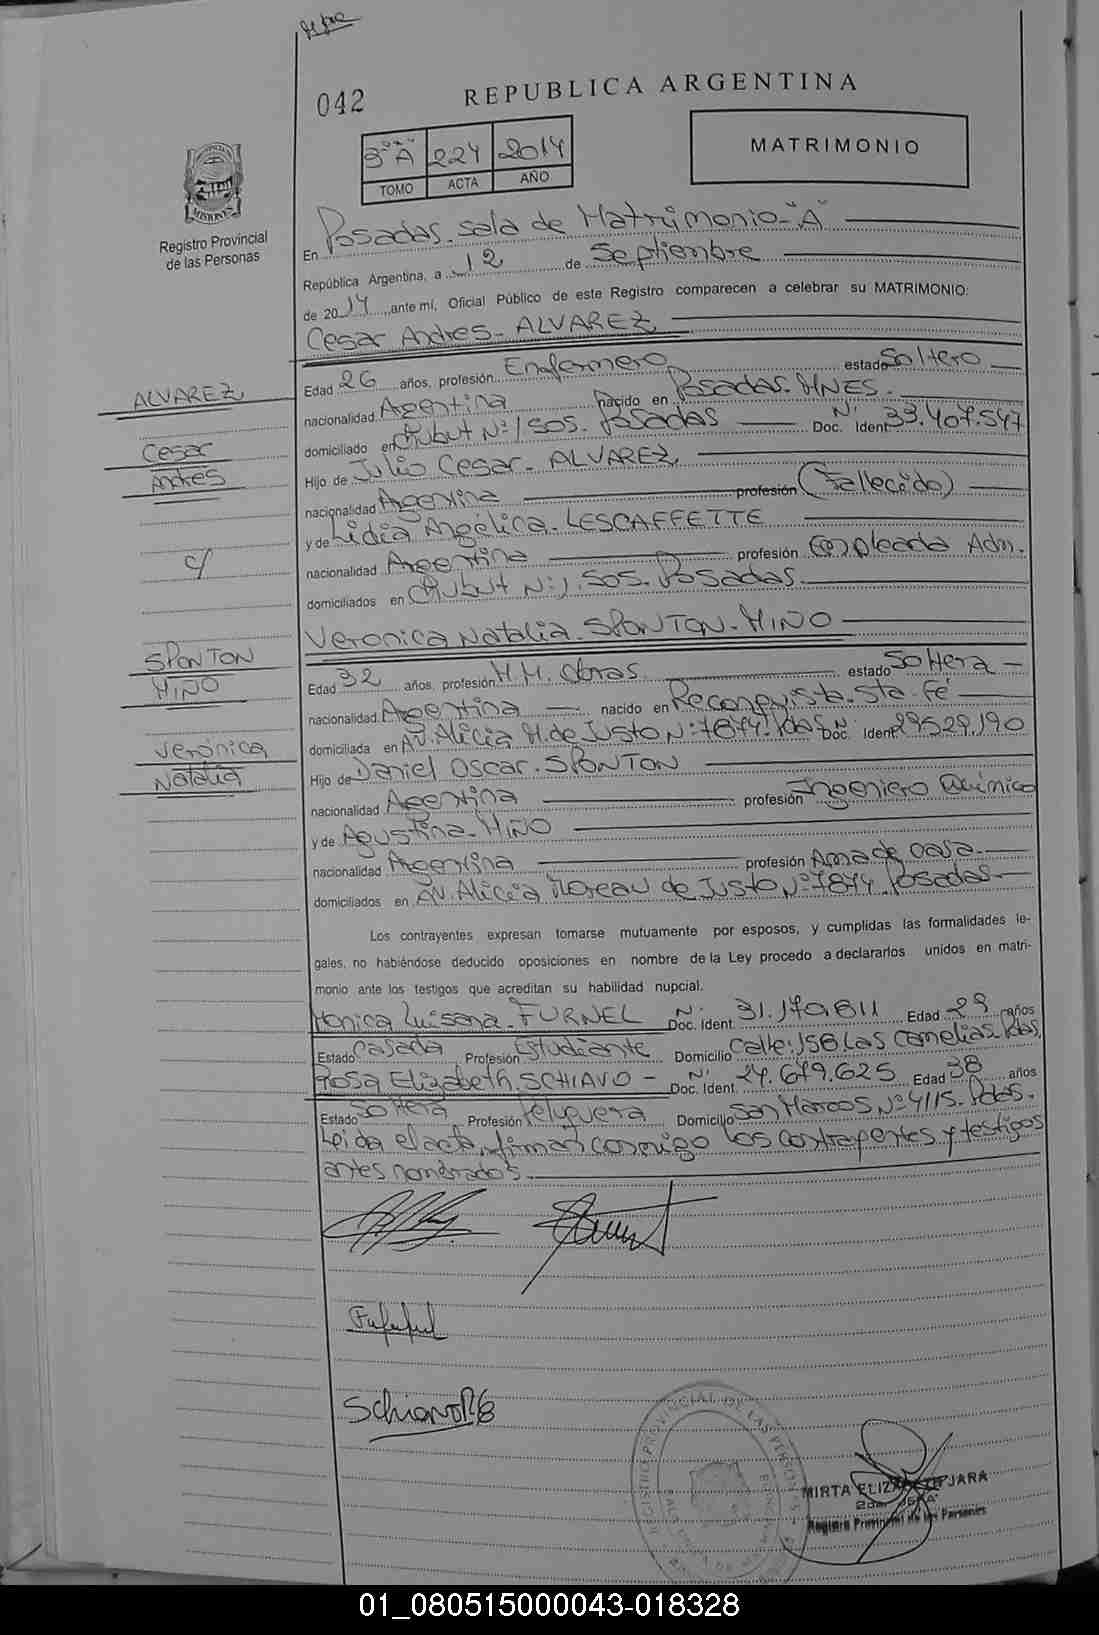 042
REPUBLICA ARGENTINA
3º "A" 224 2014
TOMO ACTA AÑO
MATRIMONIO
MISIONES
Registro Provincial
de las Personas
En Posadas. sala de Matrimonio-"A"
República Argentina, a 12 de Septiembre
de 2014 ante mí, Oficial Público de este Registro comparecen a celebrar su MATRIMONIO:
Cesar Andres- ALVAREZ
Edad 26 años, profesión Enfermero estado Soltero
nacionalidad Argentina nacido en Posadas. MNES.
domiciliado en Chubut Nº: 1505. Posadas Doc. Ident Nº 33.407.547
Hijo de Julio Cesar- ALVAREZ
nacionalidad Argentina profesión (Fallecido)
y de Lidia Angélica. LESCAFFETTE
nacionalidad Argentina profesión Empleada Adm.
domiciliados en Chubut Nº: 1.505. Posadas.
Veronica Natalia. SPONTON-MIÑO
Edad 32 años, profesión M.M. Obras. estado Soltera
nacionalidad Argentina nacido en Reconquista. Sta. Fé
domiciliada en Av. Alicia M. de Justo Nº: 7874. Pdas. Doc. Ident Nº 29529.190
Hijo de Daniel Oscar. SPONTON
nacionalidad Argentina profesión Ingeniero Químico
y de Agustina. MIÑO
nacionalidad Argentina profesión Ama de casa.
domiciliados en Av. Alicia Moreau de Justo Nº 7874. Posadas.
Los contrayentes expresan tomarse mutuamente por esposos, y cumplidas las formalidades le-
gales, no habiéndose deducido oposiciones en nombre de la Ley procedo a declararlos unidos en matri-
monio ante los testigos que acreditan su habilidad nupcial.
Monica Luisana. FURNEL Doc. Ident. Nº 31.170.811 Edad 29 años
Estado Casada Profesión Estudiante Domicilio Calle: 156 Las Camelias. Pdas.
Rosa Elizabeth. SCHIAVO - Doc. Ident. Nº 24.679.625 Edad 38 años
Estado Soltera Profesión Peluquera Domicilio San Marcos Nº 4115. Pdas.
Leida el acta, firman conmigo los contrayentes y testigos
antes nombrados.
ALVAREZ
Cesar
Andres
c/
SPONTON
MIÑO
Verónica
Natalia
Schiavo R E
REGISTRO PROVINCIAL DE LAS PERSONAS
MIRTA ELIZABETH JARA
Registro Provincial de las Personas
01_080515000043-018328